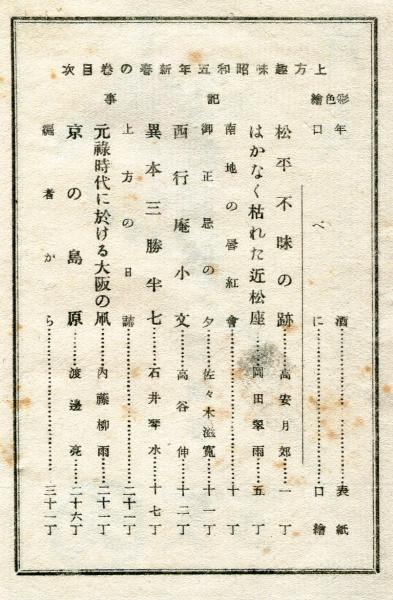 上方趣味昭和五年新春の卷目次
彩色繪
年酒……………表紙
口べに……………口繪
記事
松平不昧の跡……高安月郊……一丁
はかなく枯れた近松座……岡田翠雨……五丁
南地の唇紅會……………十丁
御正忌の夕……佐々木滋寬……十一丁
西行庵小文……高谷伸……十二丁
異本三勝半七……石井琴水……十七丁
上方の日誌……………二十一丁
元祿時代に於ける大阪の凧……內藤柳雨……二十一丁
京の島原……渡邊亮……二十六丁
編者から……………三十一丁